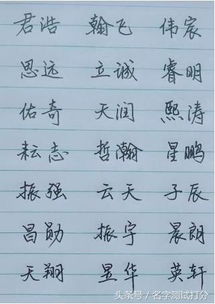 君浩 翰飞 伟宸
思远 立诚 睿明
佑奇 天润 熙涛
耘志 哲瀚 星鹏
振强 云天 子辰
昌勋 振宇 晨朗
天翔 昱华 英轩
头条号/名字测试打分